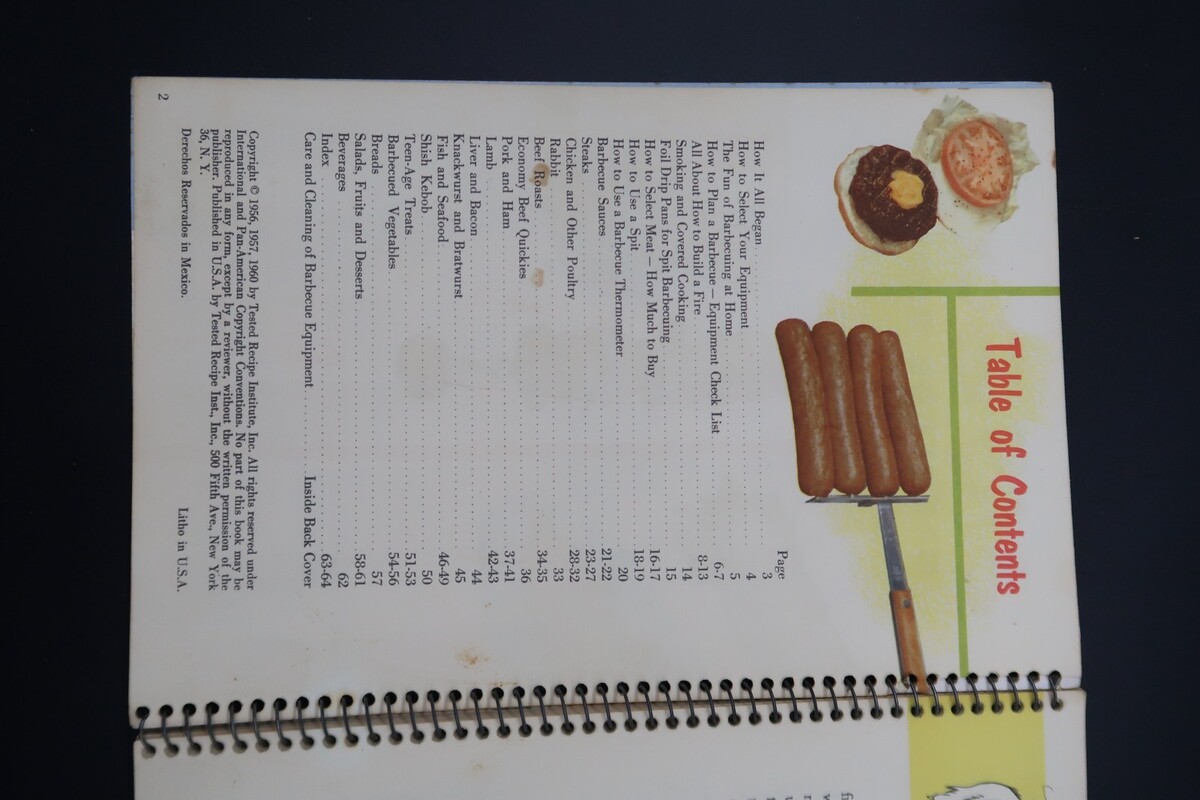 Table of Contents
Page
How It All Began 3
How to Select Your Equipment 4
The Fun of Barbecuing at Home 5
How to Plan a Barbecue — Equipment Check List 6-7
All About How to Build a Fire 8-13
Smoking and Covered Cooking 14
Foil Drip Pans for Spit Barbecuing 15
How to Select Meat — How Much to Buy 16-17
How to Use a Spit 18-19
How to Use a Barbecue Thermometer 20
Barbecue Sauces 21-22
Steaks 23-27
Chicken and Other Poultry 28-32
Rabbit 33
Beef Roasts 34-35
Economy Beef Quickies 36
Pork and Ham 37-41
Lamb 42-43
Liver and Bacon 44
Knackwurst and Bratwurst 45
Fish and Seafood 46-49
Shish Kebob 50
Teen-Age Treats 51-53
Barbecued Vegetables 54-56
Breads 57
Salads, Fruits and Desserts 58-61
Beverages 62
Index 63-64
Care and Cleaning of Barbecue Equipment Inside Back Cover
Copyright © 1956, 1957 1960 by Tested Recipe Institute, Inc. All rights reserved under
International and Pan-American Copyright Conventions. No part of this book may be
reproduced in any form, except by a reviewer, without the written permission of the
publisher. Published in U.S.A. by Tested Recipe Inst., Inc., 500 Fifth Ave., New York
36, N. Y.
Derechos Reservados in Mexico. Litho in U.S.A.
2